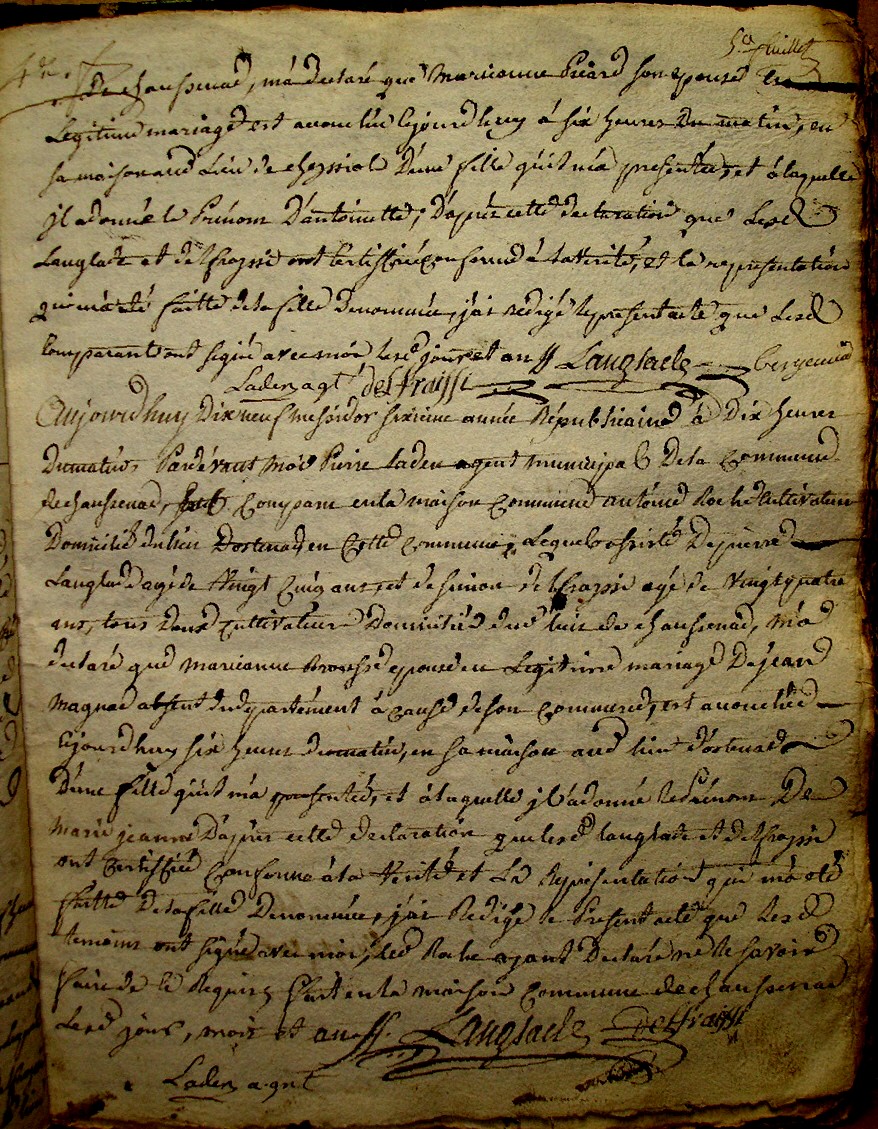 5e. feuillet
de chaussenac, m'a declaré que Marianne Picard son epouse en
Legitime mariage est accouchée cejourd'huy à six heures du matin, en
sa maison aud. Lieu de D'une fille qu'il m'a presentée, et à laquelle
jl a donné le Prénom D'antoinette, D'apres cette declaration que Lesd.
Langlade et delfraissi ont Certiffié Conforme à la verité, et la representation
qui m'a été faitte de la fille Denommée, j'ai redigé le present acte que Lesd.
Comparants ont signé avec moi lesd. jour et an Langlade
Laden agt delfraissi
Aujourd'huy Dix neuf messidor sixieme année Républicaine à Dix heures
Du matin, Pardevant Moi Pierre Laden agent municipal De la Commune
de chaussenac, Comparu en la maison Commune antoine Roche Cultivateur
Domicilié du lieu D'ostenac en Cette Commune, Lequel assisté De pierre
Langlade agé de Vingt Cinq ans, et de simon delfraissi agé de Vingt quatre
ans, tous Deux Cultivateurs Domiciliés du lieu de chaussenac, m'a
declaré que marianne epouse en Legitime mariage De jean
Magnac absent du departement à cause de son Commerce, est accouchée
cejourd'huy six heures du matin, en sa maison aud. lieu d'ostenac
D'une fille qu'il m'a presentée, et à laquelle jl a donné le Prénom De
Marie jeanne D'apres cette declaration que lesd. langlade et delfraissi
ont Certiffié Conforme à la Verité et La Representation qui m'a été
faitte De la fille Denommée, j'ai Redigé le Present acte que Lesd.
temoins ont signé avec moi, led. Roche ayant Declaré ne le savoir
faire de ce Requis, fait en la maison Commune de chaussenac
Lesd. jour, mois et an Langlade delfraissi
Laden agnt